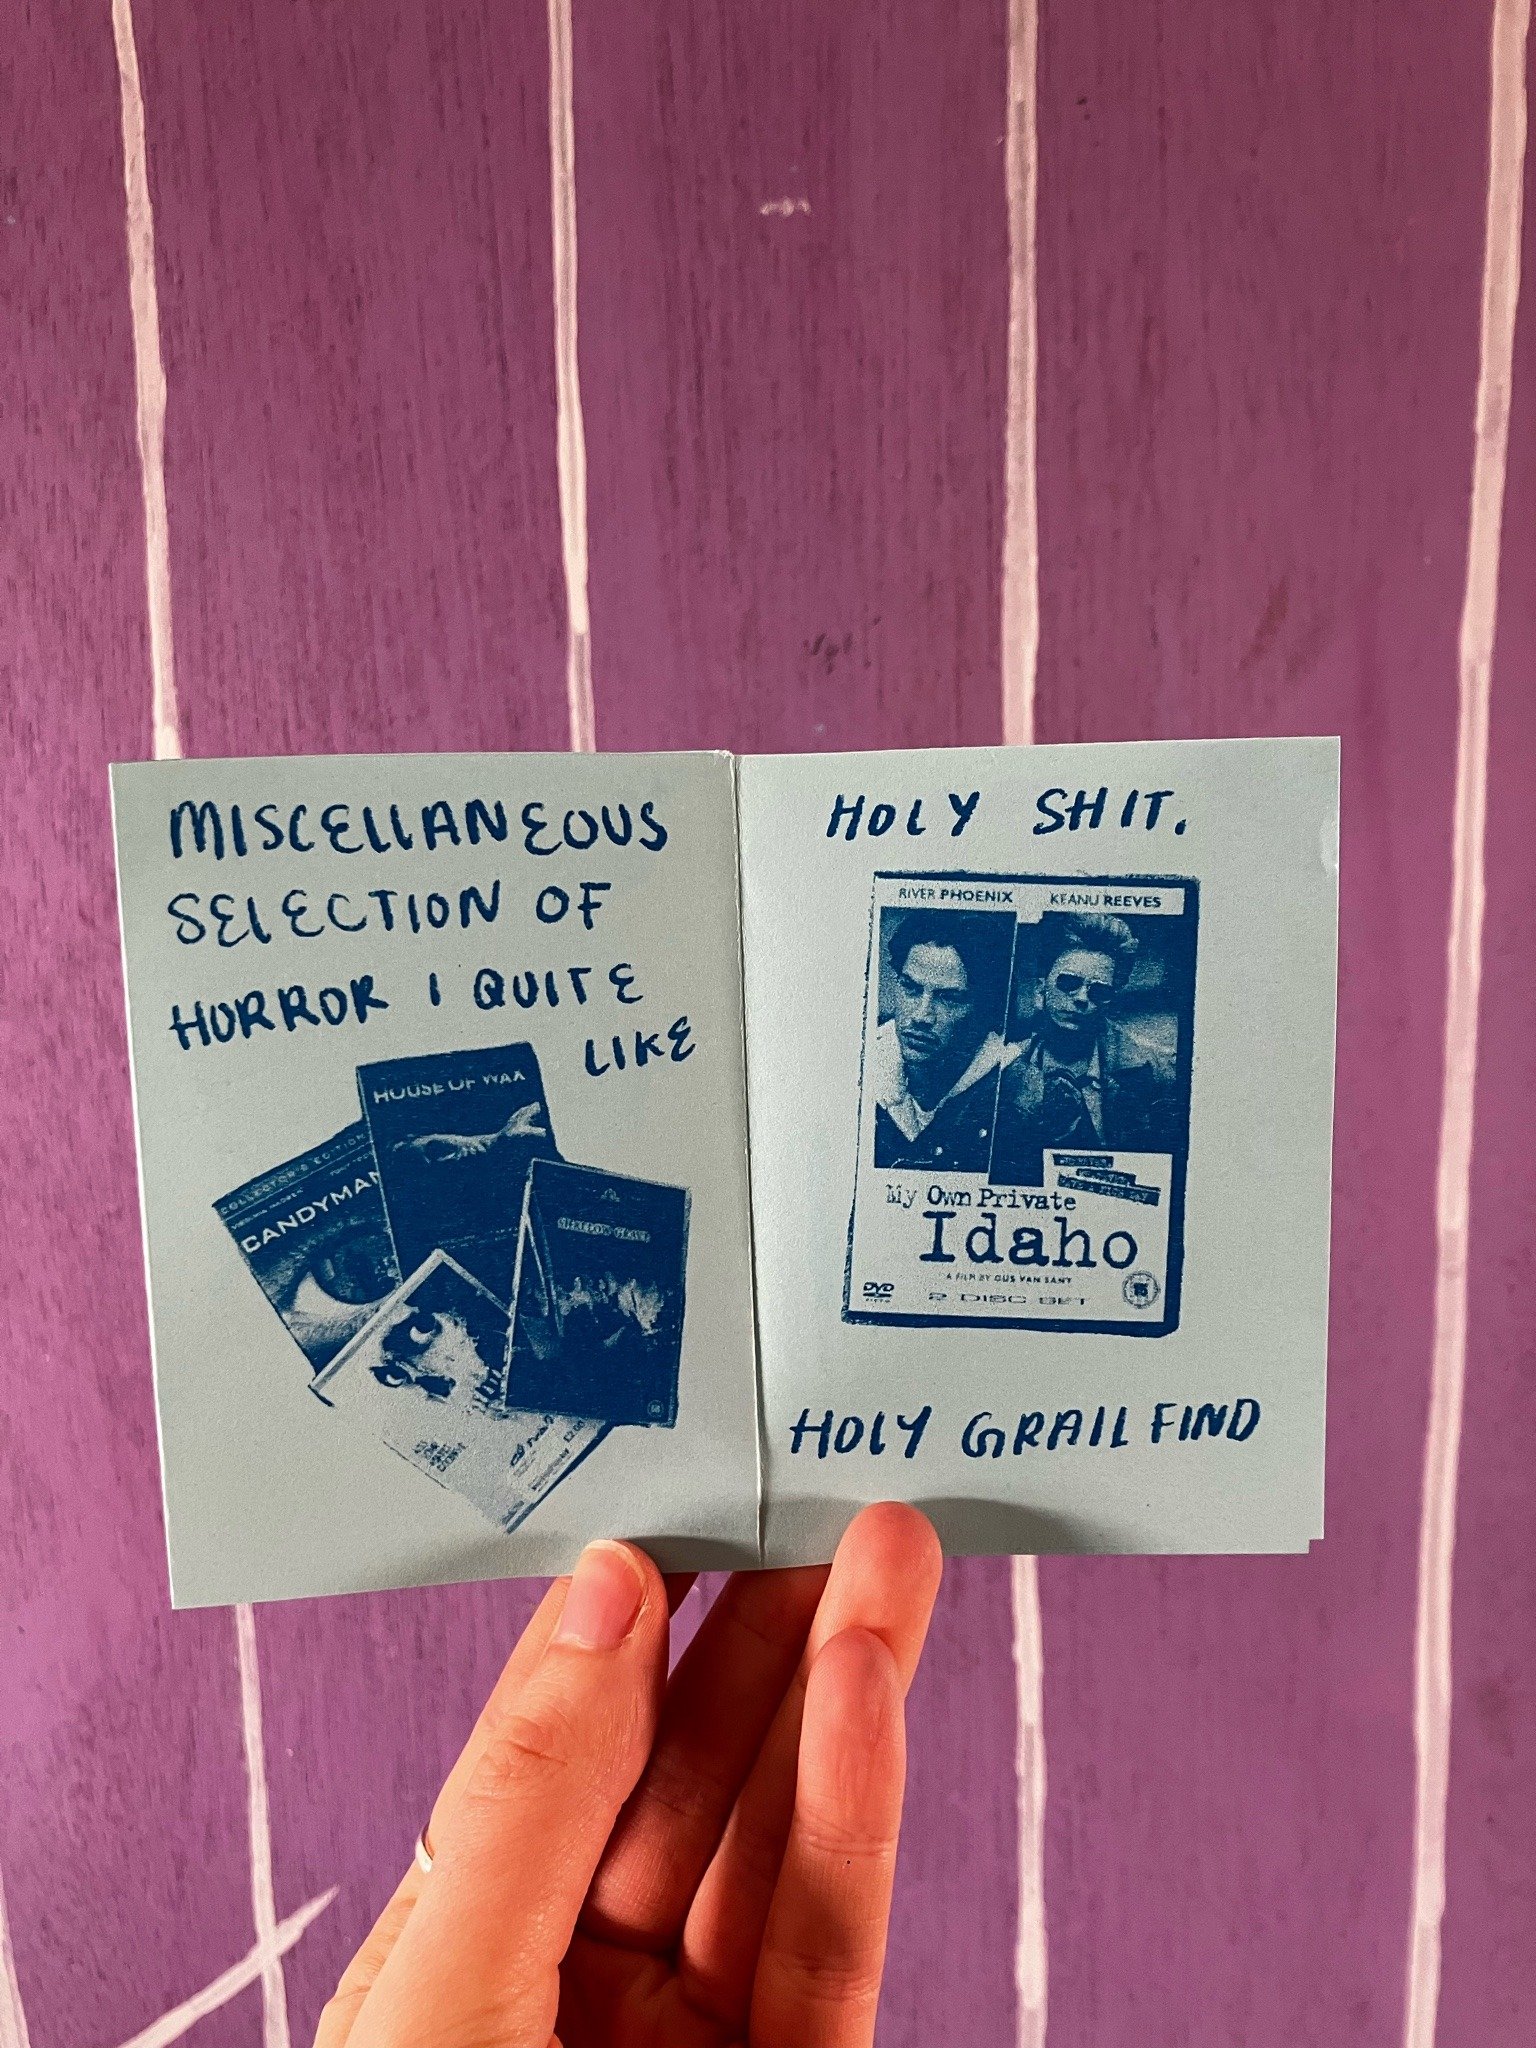 MISCELLANEOUS
SELECTION OF
HORROR I QUITE
LIKE
HOUSE OF WAX
COLLECTOR'S EDITION
CANDYMAN
SHALLOW GRAVE
HOLY SHIT.
RIVER PHOENIX KEANU REEVES
My Own Private
Idaho
A FILM BY GUS VAN SANT
DVD
2 DISC SET
15
HOLY GRAIL FIND